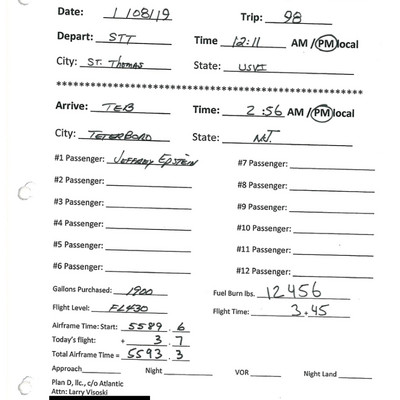 Date: 1/08/19 Trip: 98
Depart: STT Time 12:11 AM / PM local
City: ST. THOMAS State: USVI
************************************************
Arrive: TEB Time: 2:56 AM / PM local
City: TETERBORO State: NJ.
#1 Passenger: JEFFREY EPSTEIN #7 Passenger:
#2 Passenger: #8 Passenger:
#3 Passenger: #9 Passenger:
#4 Passenger: #10 Passenger:
#5 Passenger: #11 Passenger:
#6 Passenger: #12 Passenger:
Gallons Purchased: 1900 Fuel Burn lbs. 12456
Flight Level: FL430 Flight Time: 3.45
Airframe Time: Start: 5589.6
Today's flight: + 3.7
Total Airframe Time = 5593.3
Approach Night VOR Night Land
Plan D, llc., c/o Atlantic
Attn: Larry Visoski